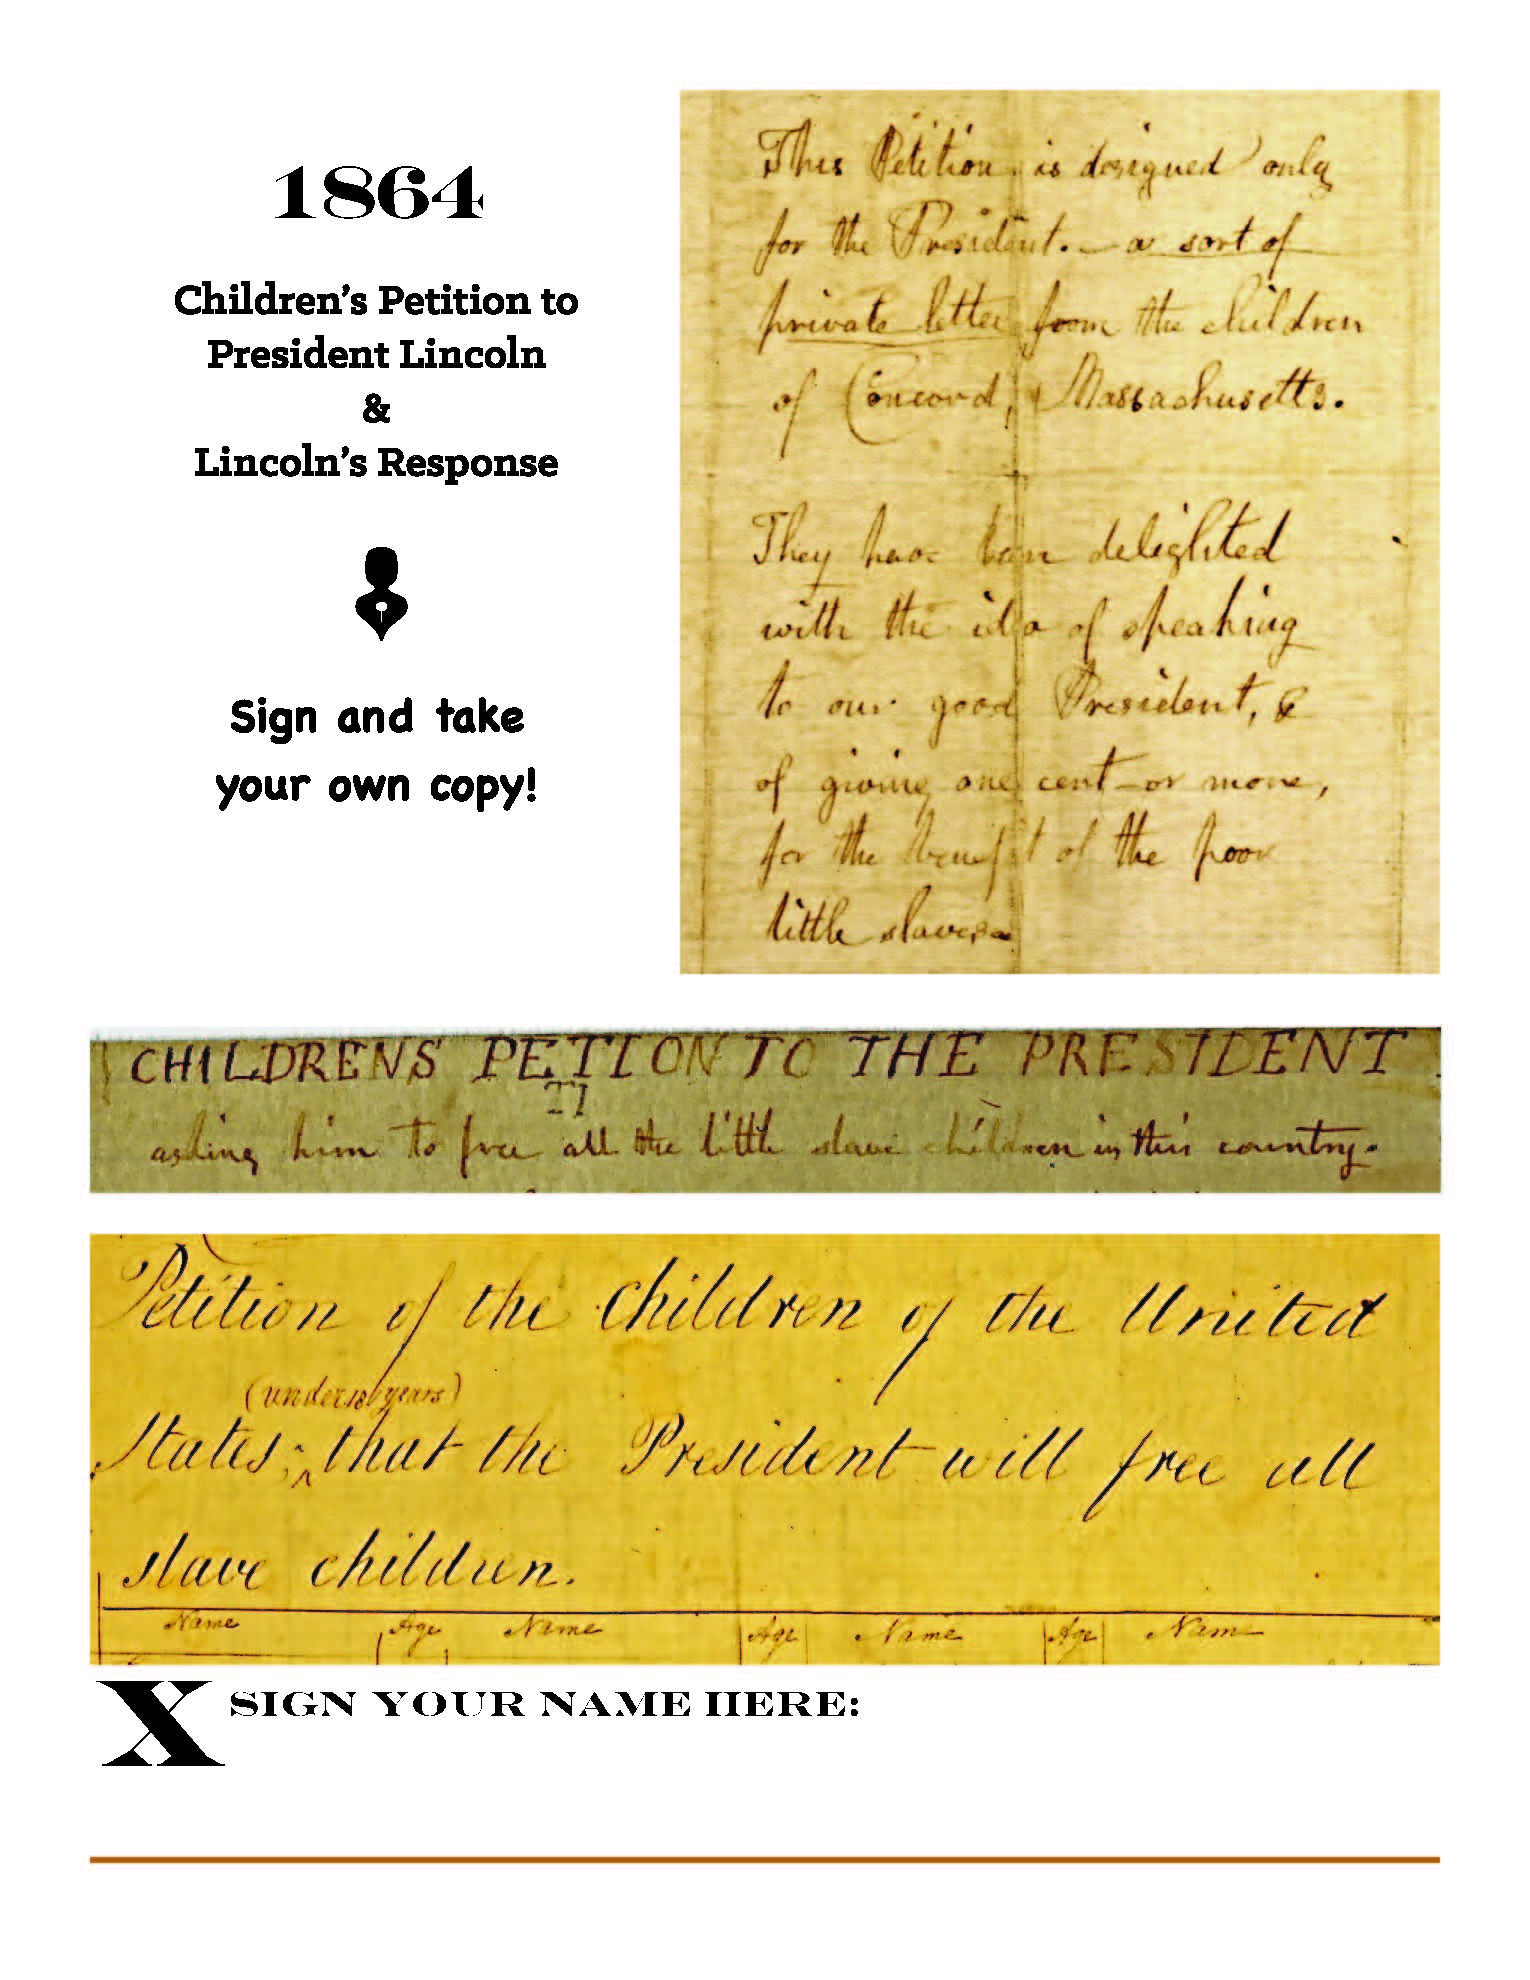 1864
Children's Petition to
President Lincoln
&
Lincoln's Response
Sign and take
your own copy!
This Petition is designed only
for the President. — a sort of
private letter from the children
of Concord, Massachusetts.
They have been delighted
with the idea of speaking
to our good President, &
of giving one cent – or more,
for the benefit of the poor
little slaves.
CHILDRENS PETION TO THE PRESIDENT
TI
asking him to free all the little slave children in this country.
Petition of the children of the United
(under 18 years)
States; ^ that the President will free all
slave children.
Name Age Name Age Name Age Name
X SIGN YOUR NAME HERE: